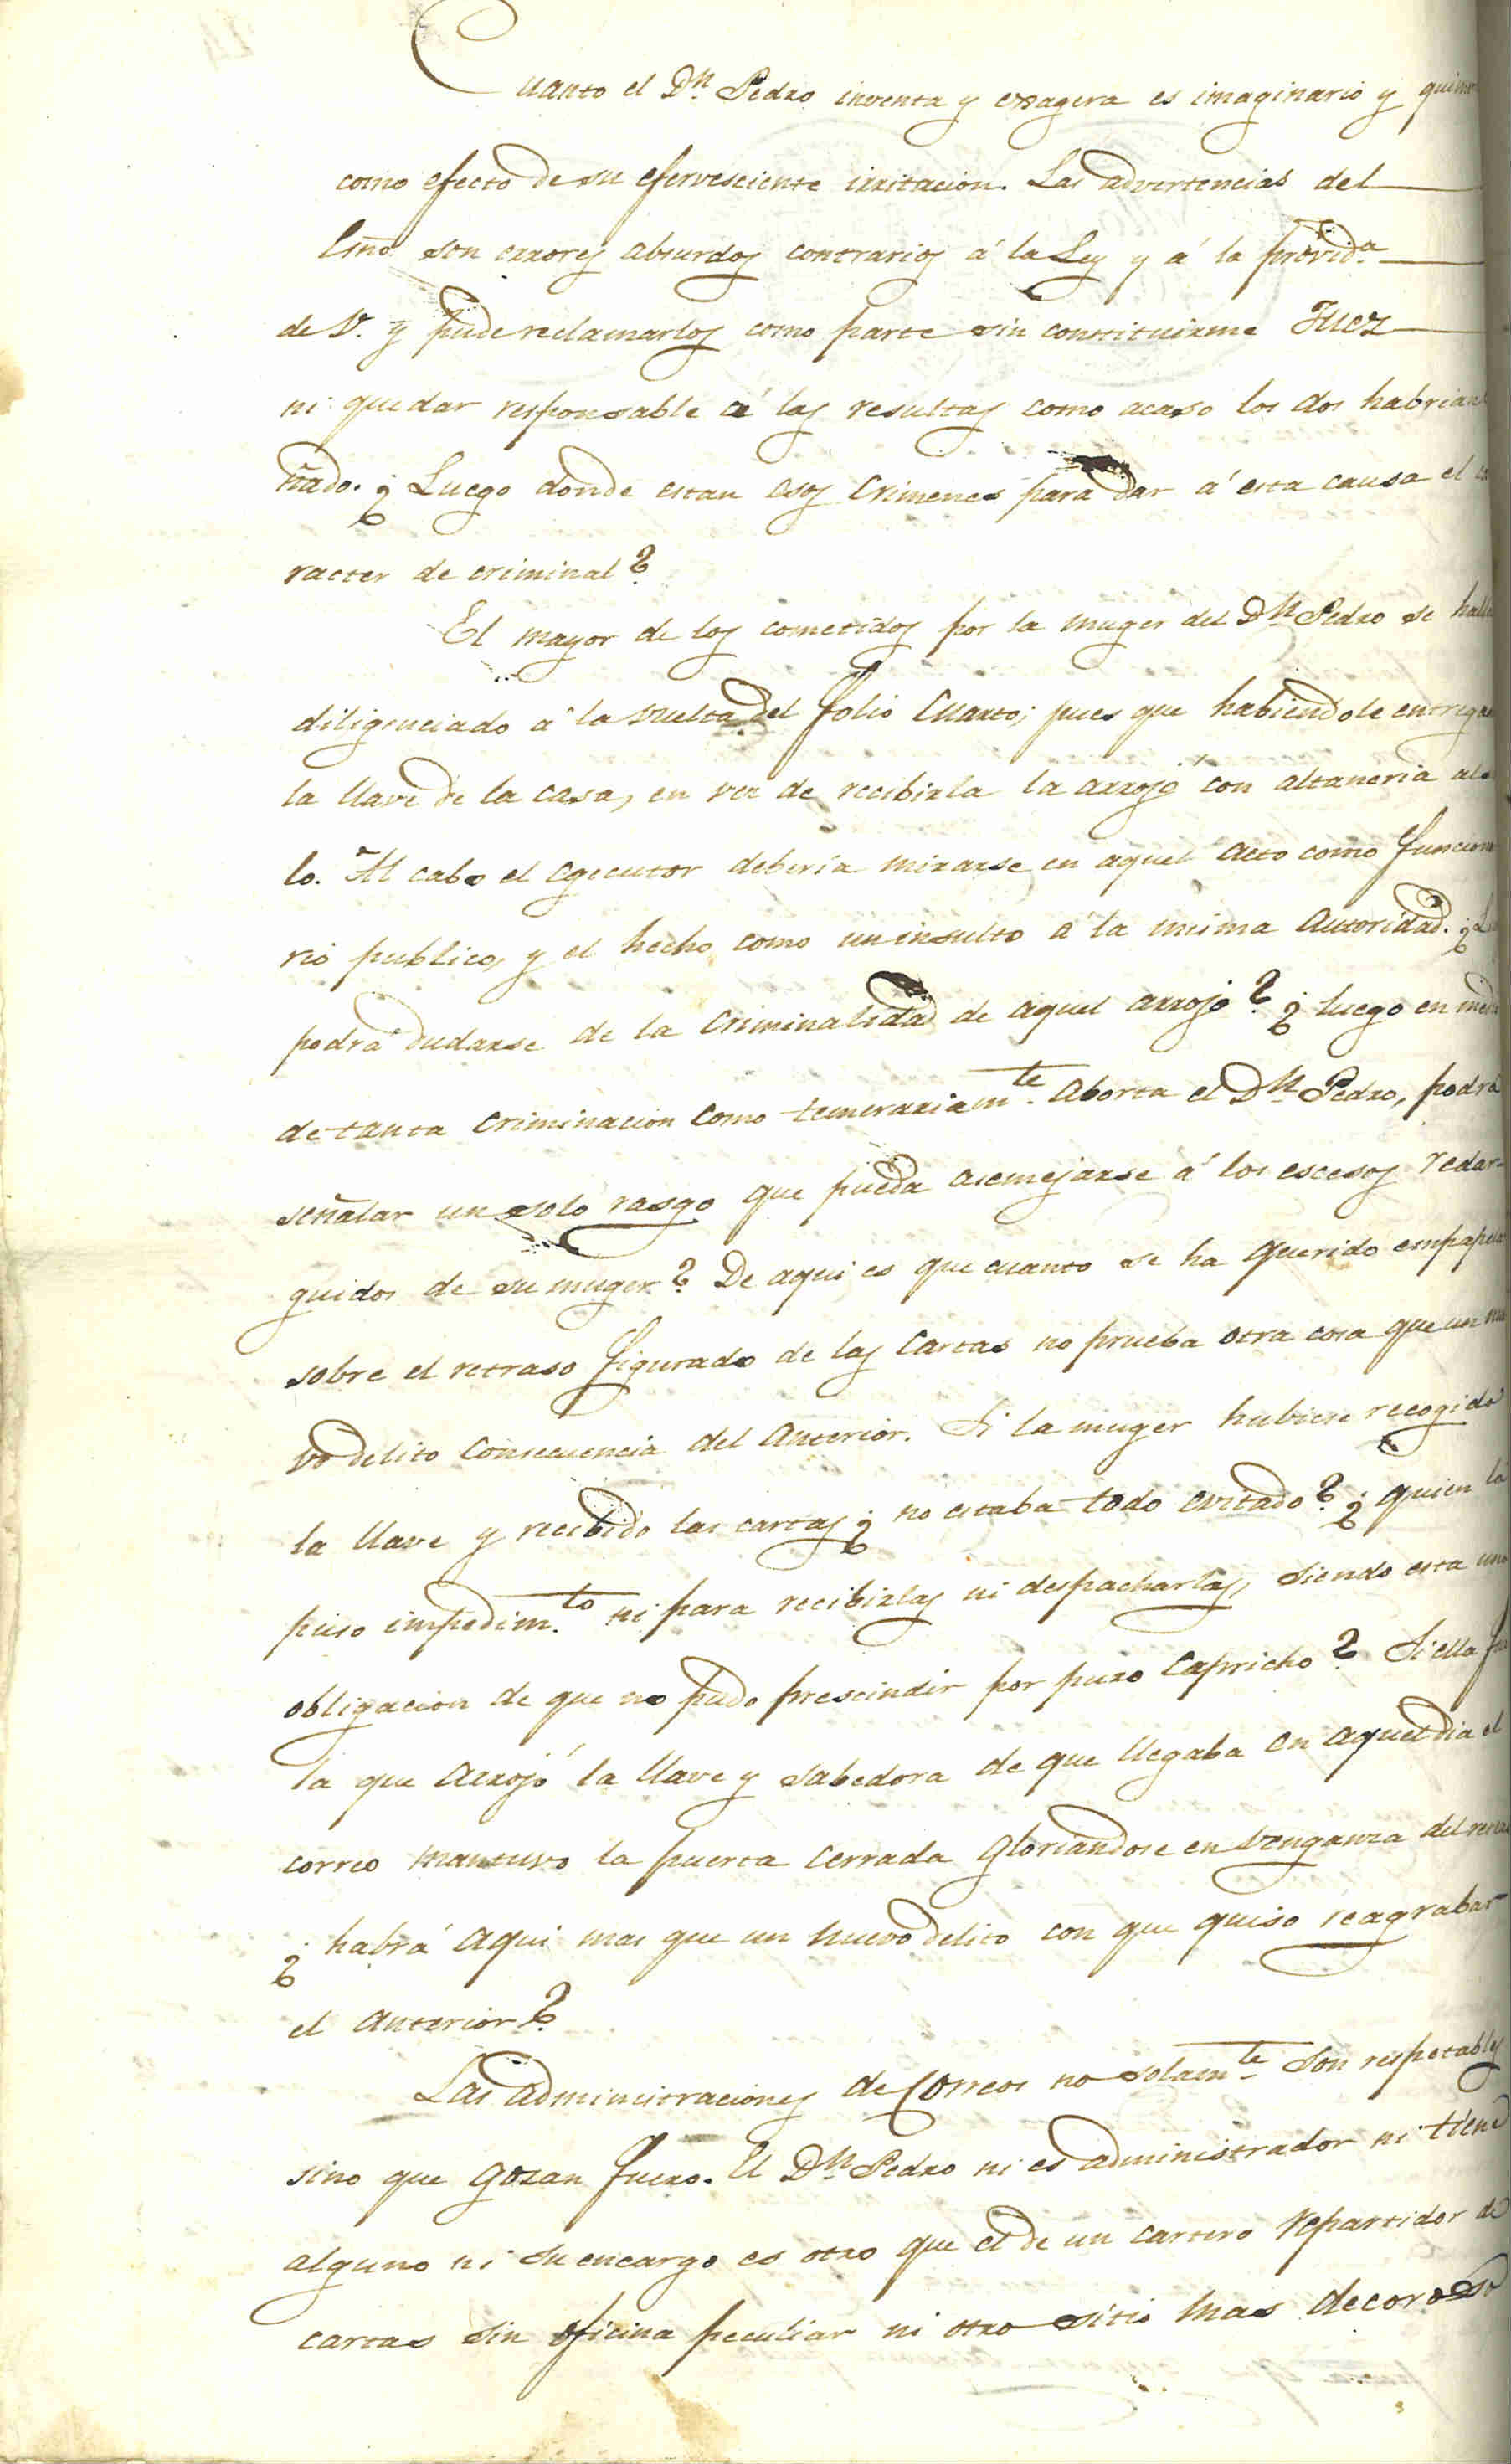 Cuanto el Dn. Pedro inventa y exagera es imaginario y
como efecto de su efervesciente irritacion. Las advertencias del
Esño. son errores absurdos contrarios á la Ley y á la provida.
de V. y pude reclamarlos como parte sin constituirme Juez
ni quedar responsable á las resultas como acaso los dos habrian
ñado. ¿Luego donde estan esos Crimenes para dar á esta causa el ca
racter de criminal?
El mayor de los cometidos por la muger del Dn. Pedro se halla
diligenciado á la vuelta del folio Cuarto; pues que habiendole entrega
la llave de la casa, en vez de recibirla la arrojó con altaneria al
lo. Al cabo el egecutor deberia mirarse en aquel acto como funciona
rio publico, y el hecho como un insulto á la misma Autoridad. ¿
podrá dudarse de la Criminalidad de aquel arrojo? ¿luego en medio
de tanta Criminacion como temerariamte. aborta el Dn. Pedro, podrá
señalar un solo rasgo que pueda asemejarse á los escesos redar-
guidos de su muger? De aqui es que cuanto se ha querido empapelar
sobre el retraso figurado de las Cartas no prueba otra cosa que un nue
vo delito Consecuencia del Anterior. Si la muger hubiese recogido
la llave y recibido las cartas ¿no estaba todo evitado? ¿quien la
puso impedimto. ni para recibirlas ni despacharlas, siendo esta una
obligacion de que no pudo prescindir por puro Capricho? Si ella fue
la que Arrojó la llave y sabedora de que llegaba en aquel dia el
correo mantuvo la puerta Cerrada Gloriandose en Venganza del
¿habrá Aqui mas que un nuevo delito con que quiso reagrabar
el Anterior?
Las administraciones de Correos no solamte. son respetables
sino que gozan fuero. El Dn. Pedro ni es administrador ni tiene
alguno ni su encargo es otro que el de un cartero repartidor de
cartas sin oficina peculiar ni otro sitio mas decoroso